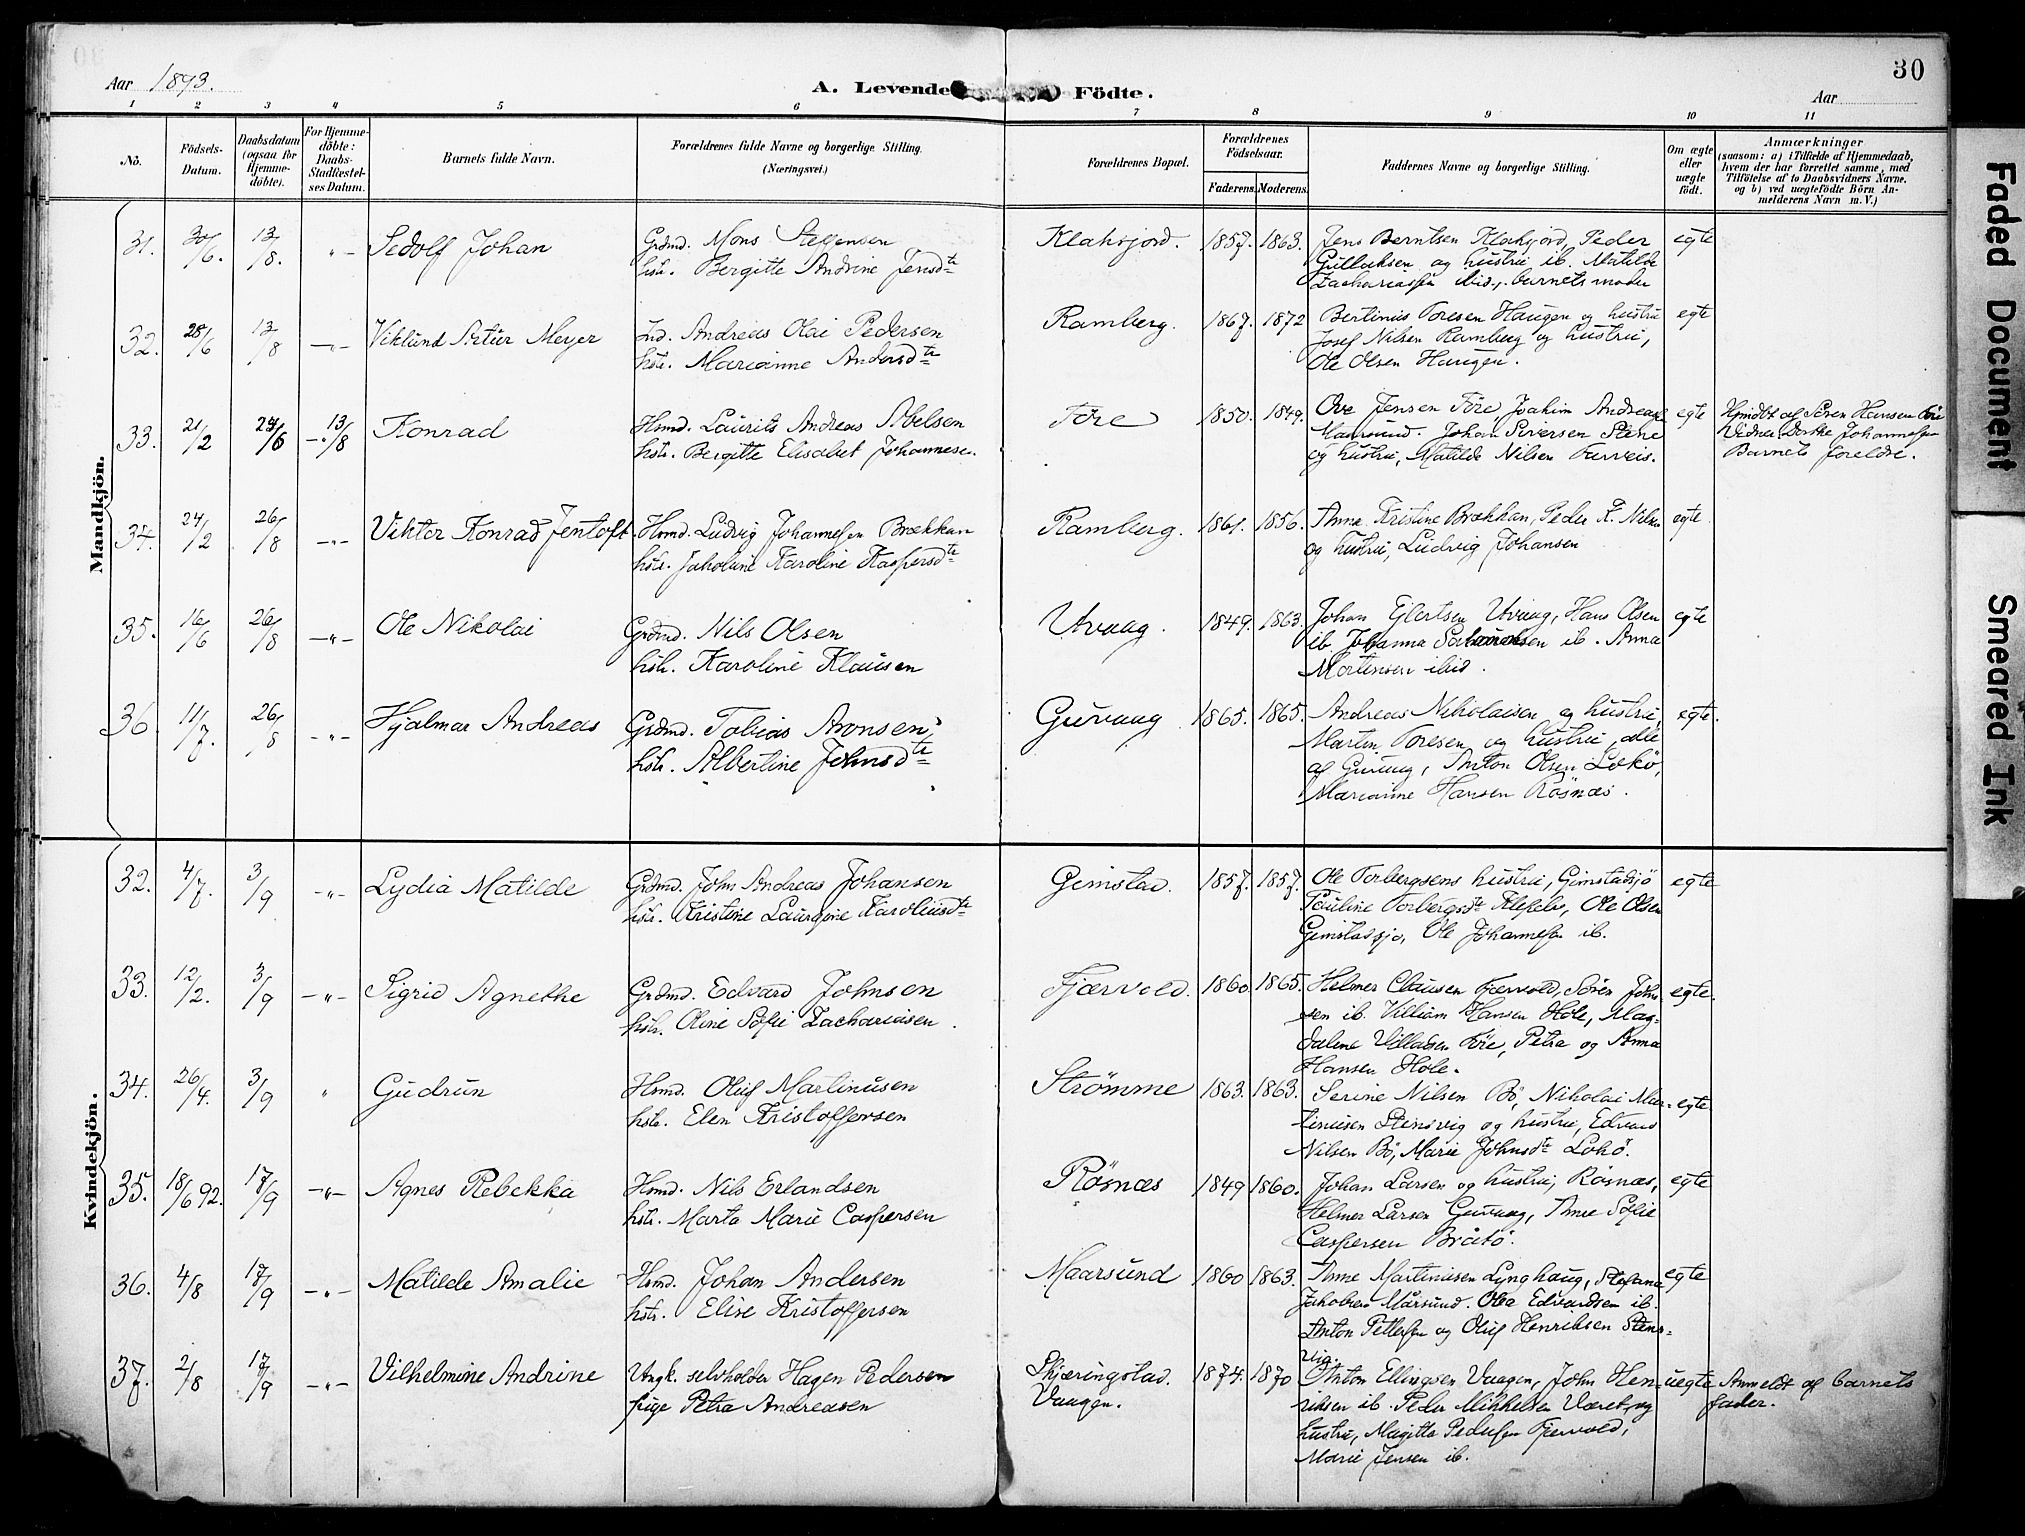 30
Aar 1893.
A. Levende Födte.
Aar
1 2 3 4 5 6 7 8 9 10 11
No. Födsels-Datum. Daabsdatum (ogsaa for Hjemme-döbte). For Hjemme-döbte: Daabs-Stadfæstel-ses Datum. Barnets fulde Navn. Forældrenes fulde Navne og borgerlige Stilling. (Næringsvei.) Forældrenes Bopæl. Forældrenes Födselsaar. Faderens. Moderens. Faddernes Navne og borgerlige Stilling. Om ægte eller uægte födt. Anmærkninger (saasom: a) i Tilfælde af Hjemmedaab, hvem der har forrettet samme, med Tilföielse af to Daabsvidners Navne, og b) ved uægtefödte Börn Anmelderens Navn m. V.)
Mandkjön.
31. 30/6. 13/8. -"- Sedolf Johan
Grdmd. Mons Steffensen
hstr. Bergitte Andrine Jensdtr
Klaksjord. 1857. 1863.
Jens Berntsen Klaksjord, Peder
Gullaksen og hustru ib. Matilde
Zachariassen ibid., barnets moder
egte
32. 28/6 13/8 -"- Viklund Artur Meyer
Ind. Andreas Olai Pedersen
hstr. Marianne Andersdtr
Ramberg. 1867. 1872
Bertinus Toresen Haugen og hustru
Josef Nilsen Ramberg og hustru,
Ole Olsen Haugen.
egte
33. 21/2 24/6 13/8 Konrad
Hsmd. Laurits Andreas Abelsen
hstr. Bergitte Elisabet Johannesen.
Före 1850. 1849.
Ove Jensen Före, Joakim Andreas
Maarsund. Johan Siversen Stene
og hustru, Matilde Nilsen
egte
Hjmdöbt af Sören Hansen Före
Vidner: Dorthe Johannessen
Barnets foreldre.
34. 24/2 26/8 -"- Viktor Konrad Jentoft
Hsmd. Ludvig Johannessen Brækkan
hstr. Jakobine Karoline Kaspersdtr
Ramberg. 1861. 1856.
Anna Kristine Brækkan, Peder K. Nilsen
og hustru, Ludvig Johansen
egte
35. 16/6 26/8 -"- Ole Nikolai
Grdmd. Nils Olsen
hstr. Karoline Klausen
Utvaag. 1849. 1863.
Johan Eilertsen Utvaag, Hans Olsen
ib. Johanna ib. Anna
Martinsen ibid.
egte
36. 11/7. 26/8 -"- Hjalmar Andreas
Grdmd. Tobias Aronsen,
hstr. Albertine Johnsdtr
Guvaag 1865. 1865.
Andreas Nikolaisen og hustru,
Martin Toresen og hustru, alle
af Guvaag, Anton Olsen Lokö,
Marianne Hansen Rösnæs.
egte.
Kvindekjön.
32. 4/7. 3/9 -"- Lydia Matilde
Grdmd. John Andreas Johansen
hstr. Kristine Laurgine Karoliusdtr
Gimstad. 1857. 1857.
Ole Torbergsens hustru, Gimstadsjö
Pauline Torbergsdtr Ole Olsen
Gimstadsjo, Ole Johannessen ib.
egte
33. 12/2. 3/9 -"- Sigrid Agnethe
Grdmd. Edvard Johnsen
hstr. Oline Sofie Zachariasen.
Fjærvold. 1860. 1865.
Helmer Clausen Fjærvold, Sören John-
sen ib. Villiam Hansen Hole, Mag-
dalene Villadsen Före, Petra og Anna
Hansen Hole.
egte.
34. 26/4. 3/9 " Gudrun
Hsmd. Oluf Martinusen
hstr. Elen Kristoffersen
Strömme 1863. 1863.
Serine Nilsen Bö, Nikolai Mar-
tinusen Stensvig og hustru, Edvard
Nilsen Bö, Marie Johnsdtr Lokö.
egte
35. 18/6 92. 17/9 -"- Agnes Rebekka
Hsmd. Nils Erlandsen
hstr. Marta Marie Caspersen
Rösnæs 1849 1860.
Johan Larsen og hustru, Rösnæs,
Helmer Larsen Guvaag, Anne Sofie
Caspersen Bråtö.
egte
36. 4/8 17/9 -"- Matilde Amalie
Hsmd. Johan Andersen
hstr. Elise Kristoffersen
Maarsund 1860 1863.
Anne Martinusen Lynghaug, Stefana
Jakobsen Mårsund. Olea Edvardsen ib.
Anton Pettersen og Oluf Henriksen Stens-
vig.
egte
37. 2/8 17/9 -"- Vilhelmine Andrine
Ungk. selvholder Hagen Pedersen
pige Petra Andreasen
Skjæringstad. 1874. 1870
Vaagen.
Anton Ellingsen Vaagen, John Hen-
riksen ib. Peder Mikkelsen Været, og
hustru, Magitta Pedersen Fjervold,
Marie Jensen ib.
uegte
Anmeldt af barnets
fader.
Faded Document
Smeared Ink